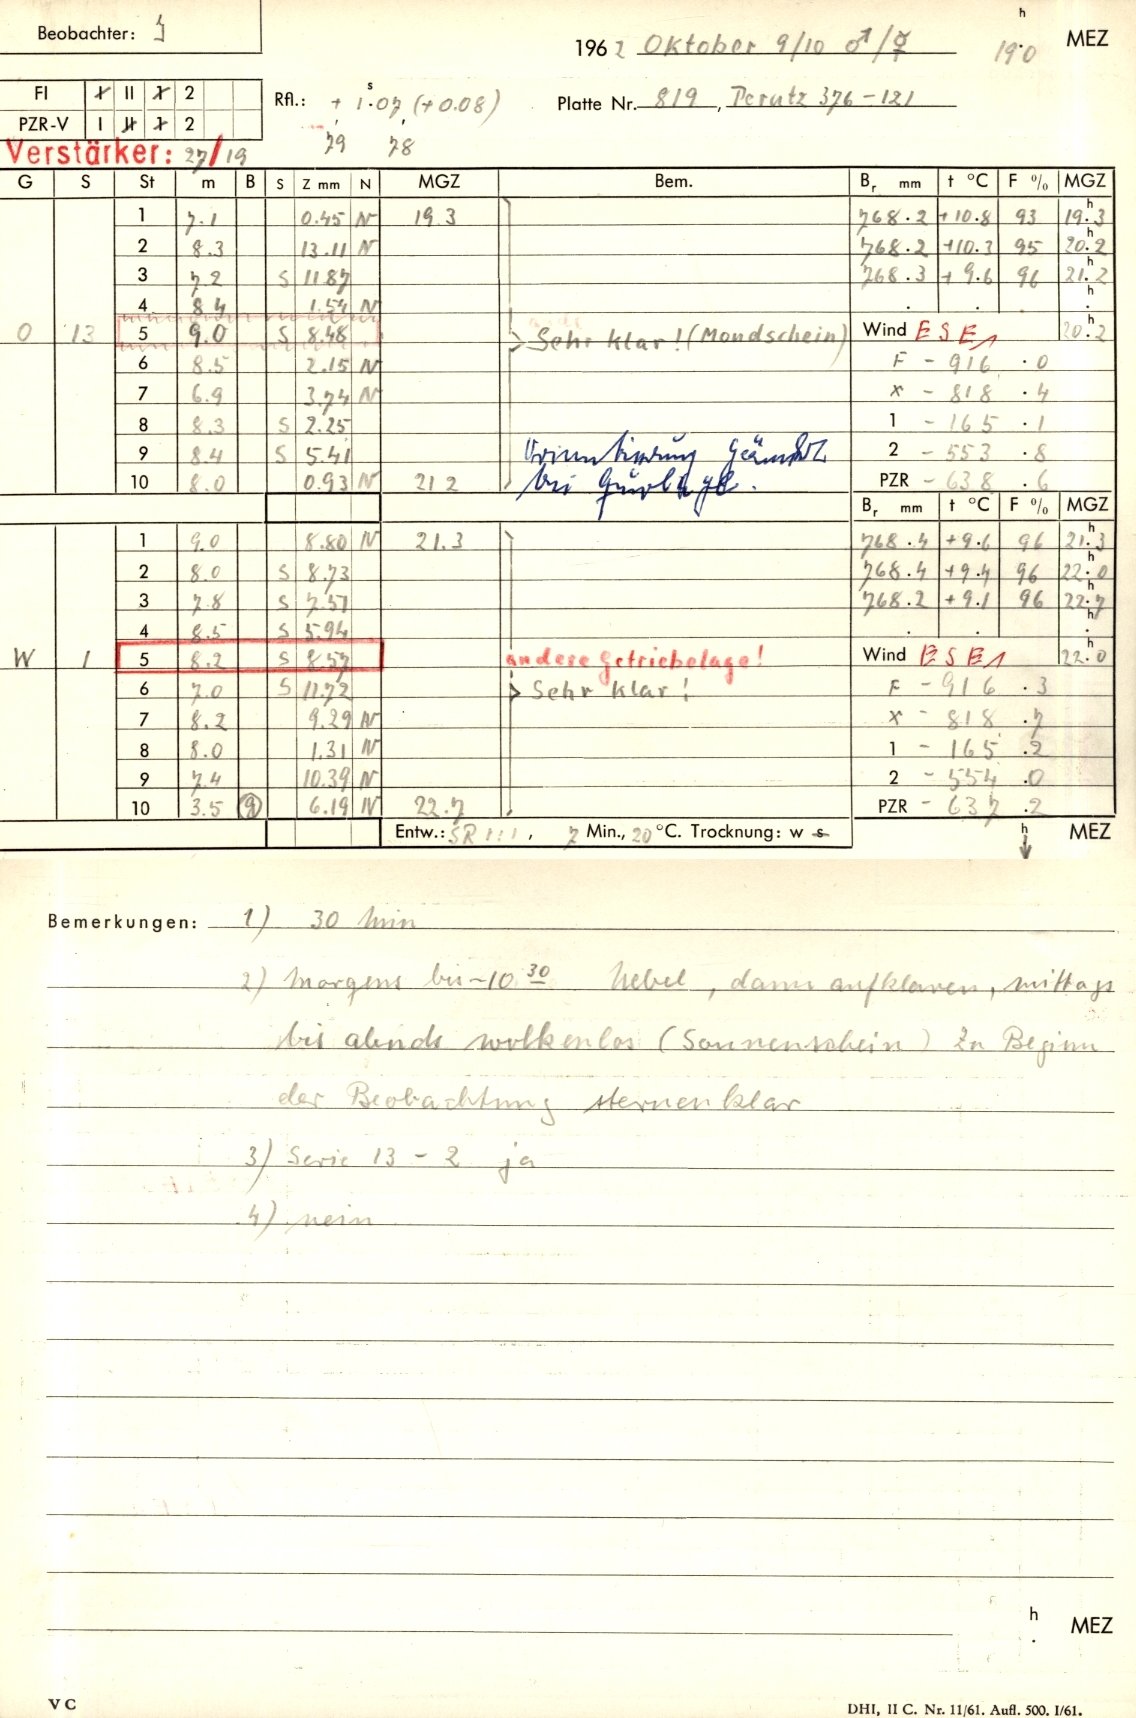 Beobachter: J
1962 Oktober 9/10 ♂/☿ 19ʰ.0 MEZ
FI X II X 2
PZR-V I II X 2
Rfl.: + 1ˢ.07 (+0.08)
79 78
Platte Nr. 819, Perutz 376-121
Verstärker: 27/19
G S St m B S Z mm N MGZ Bem. Br mm t °C F % MGZ
1 7.1 0.45 N 19.3 768.2 +10.8 93 19ʰ.3
2 8.3 13.11 N 768.2 +10.3 95 20ʰ.2
3 7.2 S 11.87 768.3 + 9.6 96 21ʰ.2
4 8.4 1.54 N . . ʰ.
O 13 5 9.0 S 8.48 Sehr klar! (Mondschein) Wind ESE 1 20ʰ.2
6 8.5 2.15 N F - 916 .0
7 6.9 3.74 N x - 818 .4
8 8.3 S 2.25 1 - 165 .1
9 8.4 S 5.41 geändert 2 - 553 .8
10 8.0 0.93 N 21.2 bei PZR - 638 .6
Br mm t °C F % MGZ
1 9.0 8.80 N 21.3 768.4 +9.6 96 21ʰ.3
2 8.0 S 8.73 768.4 +9.4 96 22ʰ.0
3 7.8 S 7.51 768.2 +9.1 96 22ʰ.7
4 8.5 S 5.94 . . ʰ.
W 1 5 8.2 S 8.57 andere Getriebelage! Wind ESE 1 22ʰ.0
6 7.0 S 11.72 Sehr klar! F - 916 .3
7 8.2 9.29 N x - 818 .7
8 8.0 1.31 N 1 - 165 .2
9 7.4 10.39 N 2 - 554 .0
10 3.5 9 6.19 N 22.7 PZR - 637 .2
Entw.: SR 1:1, 7 Min., 20 °C. Trocknung: w s h MEZ
Bemerkungen: 1) 30 Min
2) Morgens bis ~10 30 Nebel, dann aufklaren, mittags
bis abends wolkenlos (Sonnenschein) Zu Beginn
der Beobachtung sternenklar
3) Serie 13 - 2 ja
4) nein
h . MEZ
V C
DHI, II C. Nr. 11/61. Aufl. 500. I/61.